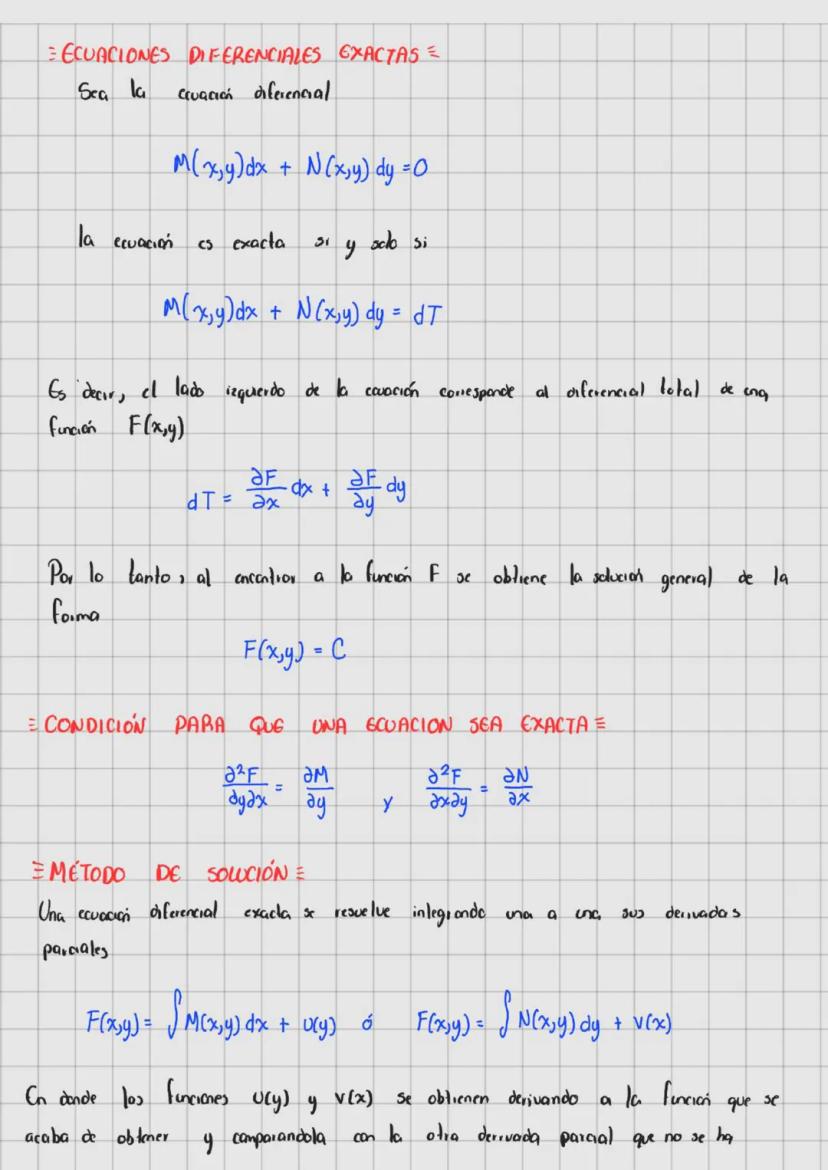 ≡ECUACIONES DIFERENCIALES EXACTAS≡
Sea la ecuación diferencial
M(x,y)dx + N(x,y)dy = 0
la ecuación es exacta si y solo si
M(x,y)dx + N(x,y)dy = dT
Es decir, el lado izquierdo de la ecuación corresponde al diferencial total de una
función F(x,y)
dT = ∂F/∂x dx + ∂F/∂y dy
Por lo tanto, al encontrar a la función F se obtiene la solución general de la
forma
F(x,y) = C
≡CONDICIÓN PARA QUE UNA ECUACION SEA EXACTA≡
∂²F/∂y∂x = ∂M/∂y y ∂²F/∂x∂y = ∂N/∂x
≡MÉTODO DE SOLUCIÓN≡
Una ecuación diferencial exacta se resuelve integrando una a una sus derivadas
parciales
F(x,y) = ∫M(x,y)dx + U(y) ó F(x,y) = ∫N(x,y)dy + V(x)
En donde las funciones U(y) y V(x) se obtienen derivando a la función que se
acaba de obtener y comparandola con la otra derivada parcial que no se ha